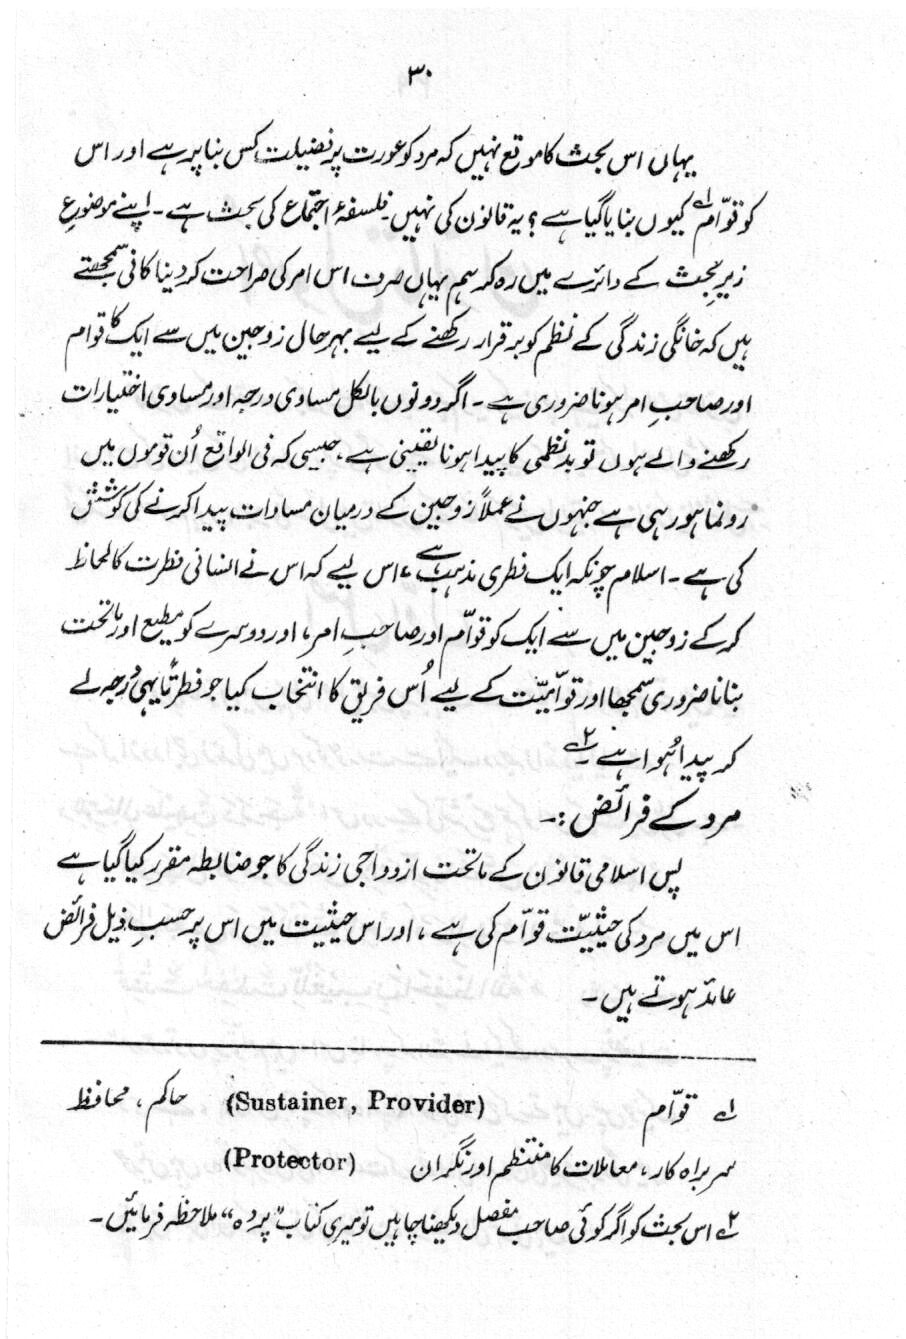 ۳۰
یہاں اس بحث کا موقع نہیں کہ مرد کو عورت پر فضیلت کس بنا پر ہے اور اس
کو قوّام ؎۱ کیوں بنایا گیا ہے؟ یہ قانون کی نہیں۔ فلسفۂ اجتماع کی بحث ہے۔ اپنے موضوعِ
زیرِ بحث کے دائرے میں رہ کر ہم یہاں صرف اس امر کی صراحت کر دینا کافی سمجھتے
ہیں کہ خانگی زندگی کے نظم کو برقرار رکھنے کے لیے بہرحال زوجین میں سے ایک کا قوام
اور صاحبِ امر ہونا ضروری ہے۔ اگر دونوں بالکل مساوی درجہ اور مساوی اختیارات
رکھنے والے ہوں تو بدنظمی کا پیدا ہونا یقینی ہے، جیسی کہ فی الواقع اُن قوموں میں
رونما ہو رہی ہے جنہوں نے عملاً زوجین کے درمیان مساوات پیدا کرنے کی کوشش
کی ہے۔ اسلام چونکہ ایک فطری مذہب ہے، اس لیے کہ اس نے انسانی فطرت کا لحاظ
کر کے زوجین میں سے ایک کو قوّام اور صاحبِ امر، اور دوسرے کو مطیع اور ماتحت
بنانا ضروری سمجھا اور قوّامیّت کے لیے اُس فریق کا انتخاب کیا جو فطرتاً یہی درجہ لے
کر پیدا ہُوا ہے ؎۲۔
مرد کے فرائض :۔
پس اسلامی قانون کے ماتحت ازدواجی زندگی کا جو ضابطہ مقرر کیا گیا ہے
اس میں مرد کی حیثیّت قوّام کی ہے، اور اس حیثیت میں اس پر حسبِ ذیل فرائض
عائد ہوتے ہیں۔
؎۱ قوّام (Sustainer, Provider) حاکم، محافظ
سربراہ کار، معاملات کا منتظم اور نگران (Protector)
؎۲ اس بحث کو اگر کوئی صاحب مفصل دیکھنا چاہیں تو میری کتاب ”پردہ“ ملاحظہ فرمائیں۔